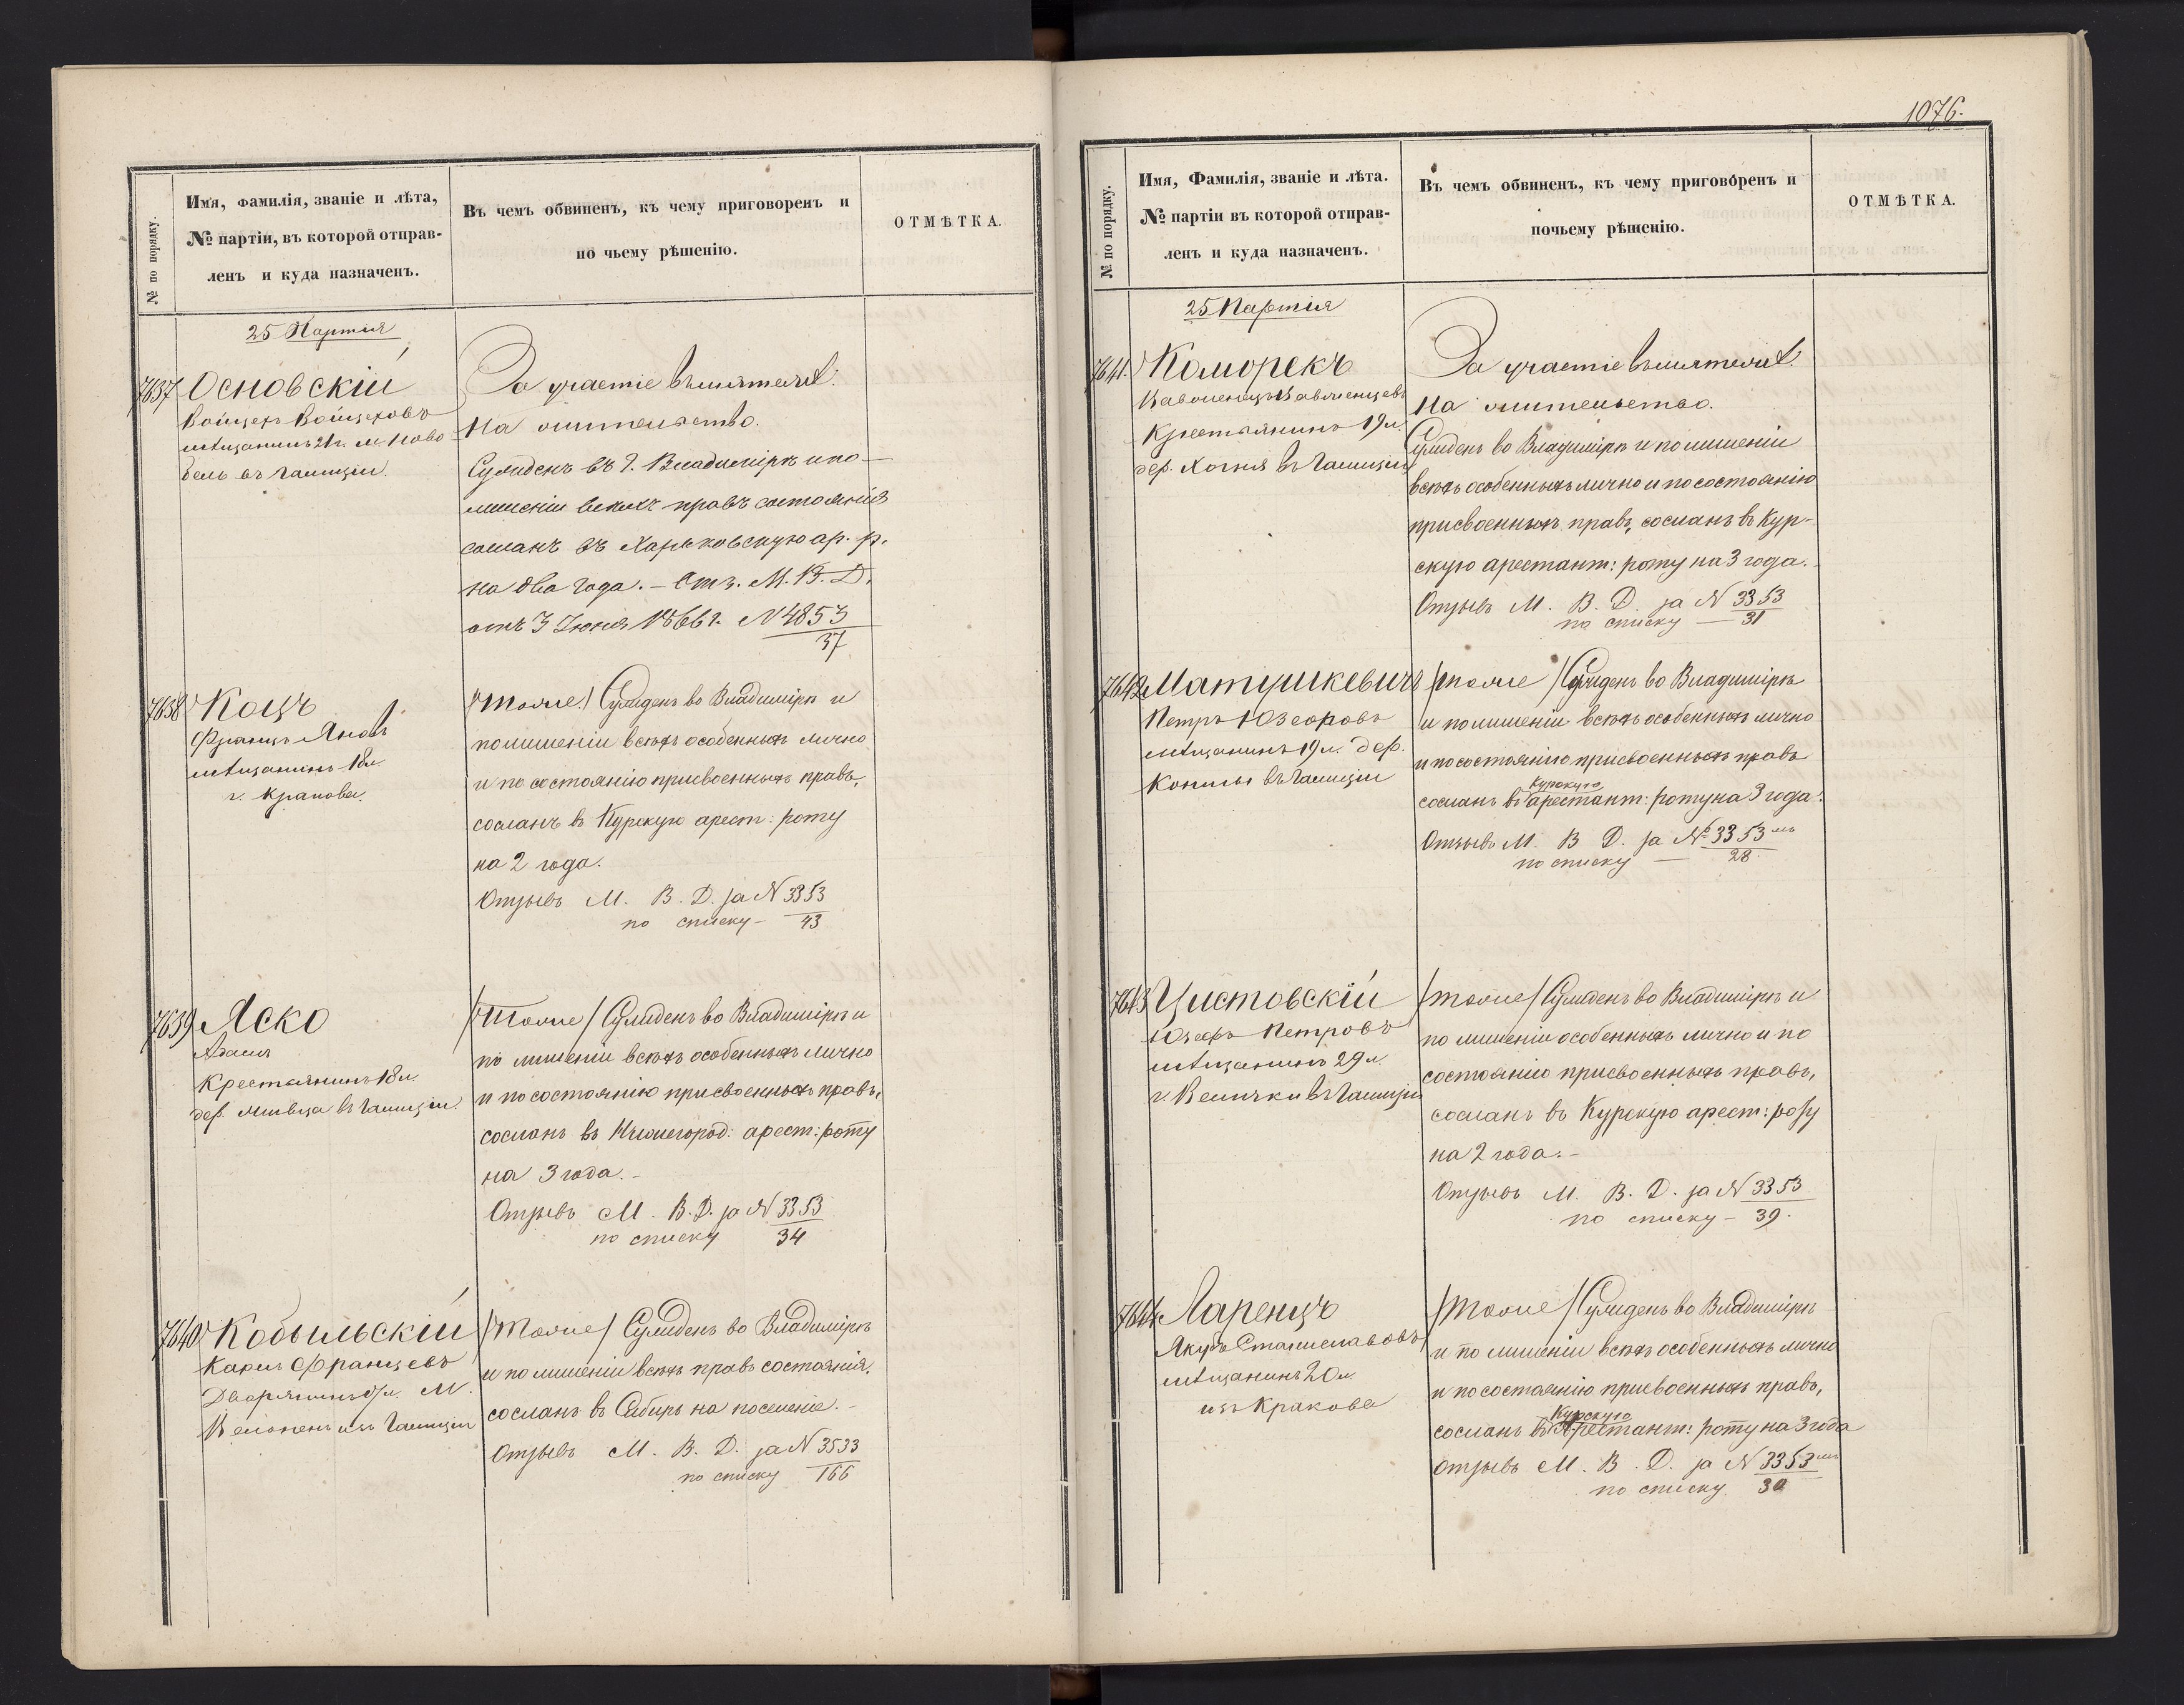 № по порядку.
Имя, фамилія, званіе и лѣта,
№ партіи, въ которой отправ-
ленъ и куда назначенъ.
Въ чемъ обвиненъ, къ чему приговоренъ и
по чьему рѣшенію.
ОТМѢТКА.
25 Партія
7637 Основскій
Войцехъ Войцеховъ
мѣщанинъ 21 г. м. Ново
бель въ Галиціи.
За участіе въ мятежѣ.
На жительство.
Сужденъ въ г. Владимірѣ и по
лишеніи всѣхъ правъ состоянія
сосланъ въ Харьковскую ар. р.
на два года. – Отз. М. В. Д.
отъ 3 Іюня 1866 г. N 4853
37
7638 Коцъ
Францъ Яновъ
мѣщанинъ 18 л.
г. Кракова.
/Тоже/ Сужденъ во Владимірѣ и
по лишеніи всѣхъ особенныхъ лично
и по состоянію присвоенныхъ правъ,
сосланъ въ Курскую арест: роту
на 2 года.
Отзывъ М. В. Д. за N 3353
по списку – 43
7639 Яско
Крестьянинъ 18 л.
дер. въ Галиціи.
/Тоже/ Сужденъ во Владимірѣ и
по лишеніи всѣхъ особенныхъ лично
и по состоянію присвоенныхъ правъ,
сосланъ въ Нижегород: арест: роту
на 3 года. –
Отзывъ М. В. Д. за N 3353
по списку 34
7640 Кобыльскій
Карлъ Францевъ
Дворянинъ л. М.
изъ Галиціи
/Тоже/ Сужденъ во Владимірѣ
и по лишеніи всѣхъ правъ состоянія,
сосланъ въ Сибирь на поселеніе. –
Отзывъ М. В. Д. за N 3533
по списку 166
1076.
№ по порядку.
Имя, Фамилія, званіе и лѣта.
№ партіи въ которой отправ-
ленъ и куда назначенъ.
Въ чемъ обвиненъ, къ чему приговоренъ и
почьему рѣшенію.
ОТМѢТКА.
25 Партія
7641. Коморекъ
Крестьянинъ 19 л.
дер. Хогня въ Галиціи
За участіе въ мятежѣ.
На жительство.
Сужденъ во Владимірѣ и по лишеніи
всѣхъ особенныхъ лично и по состоянію
присвоенныхъ правъ, сосланъ въ Кур-
скую арестант: роту на 3 года.
Отзывъ М. В. Д. за N 3353
по списку — 31
7642 Матушкевичъ
Петръ Юзефовъ
мѣщанинъ 19 л. дер.
Копилы въ Галиціи
/тоже/ Сужденъ во Владимірѣ
и по лишеніи всѣхъ особенныхъ лично
и по состоянію присвоенныхъ правъ
Курскую
сосланъ въ арестант: роту на 3 года.
Отзывъ М. В. Д. за № 3353мъ
по списку — 28
7643 Цистовскій
Юзефъ Петровъ
мѣщанинъ 29 л.
г. Велички въ Галиціи
/тоже/ Сужденъ во Владимірѣ и
по лишеніи особенныхъ лично и по
состоянію присвоенныхъ правъ,
сосланъ въ Курскую арест: роту
на 2 года. –
Отзывъ М. В. Д. за N 3353
по списку – 39.
7644 Ларенцъ
Якубъ Станиславовъ
мѣщанинъ 20 л.
изъ Кракова
/тоже/ Сужденъ во Владимірѣ
и по лишеніи всѣхъ особенныхъ лично
и по состоянію присвоенныхъ правъ,
Курскую
сосланъ въ арестант: роту на 3 года
отзывъ М. В. Д. за N 3353мъ
по списку 30